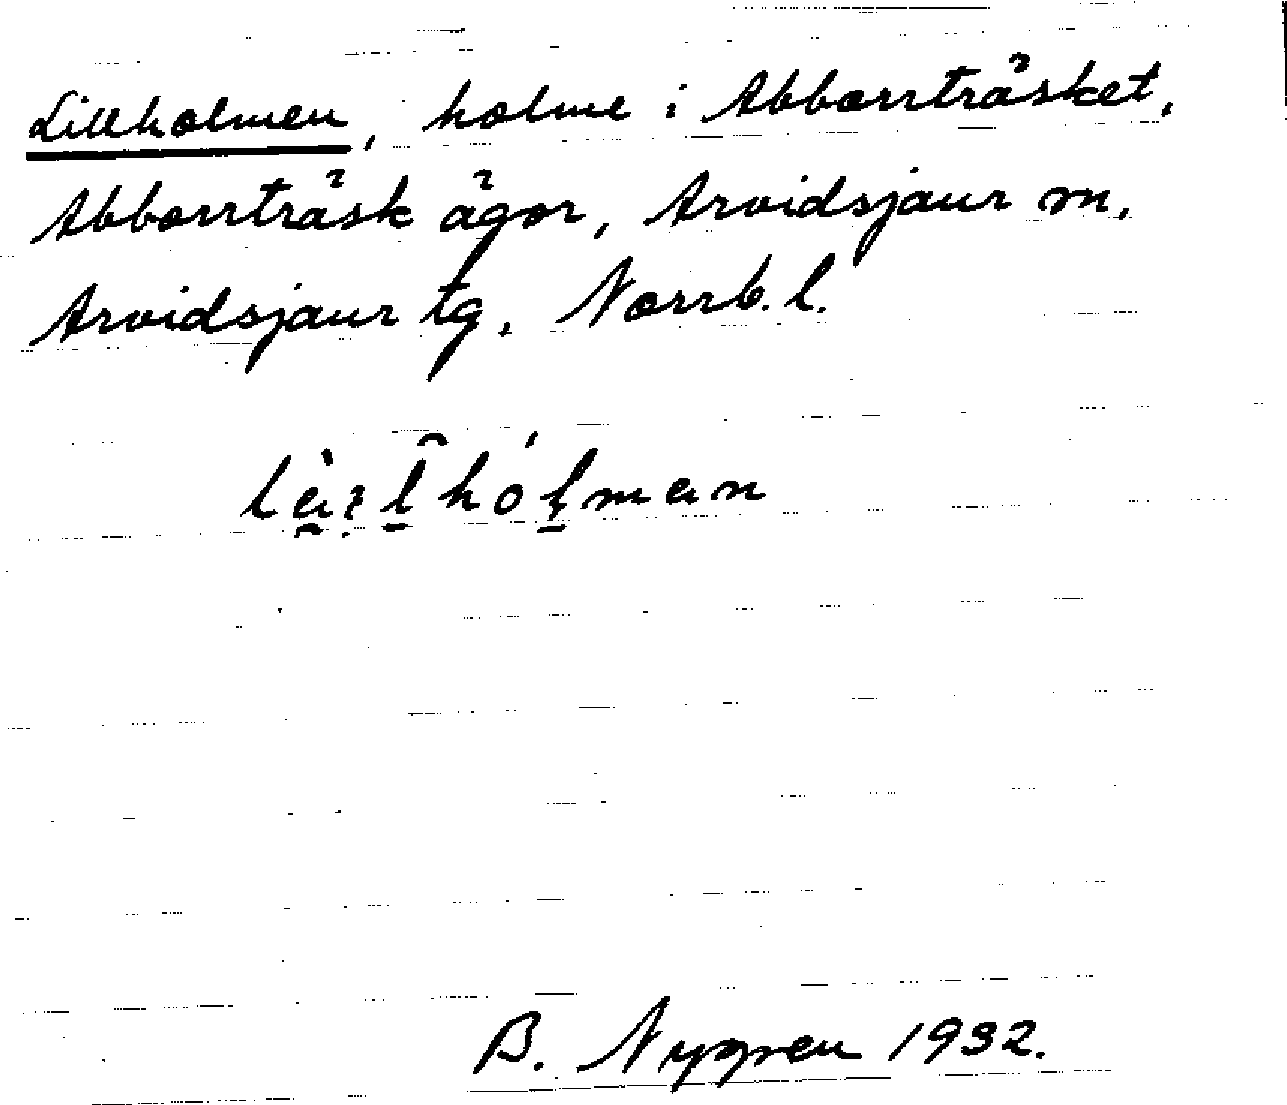 Lillholmen, holme i Abborrträsket,
Abborrträsk ägor, Arvidsjaur sn,
Arvidsjaur tg, Norrb. l.
B. Nygren 1932.